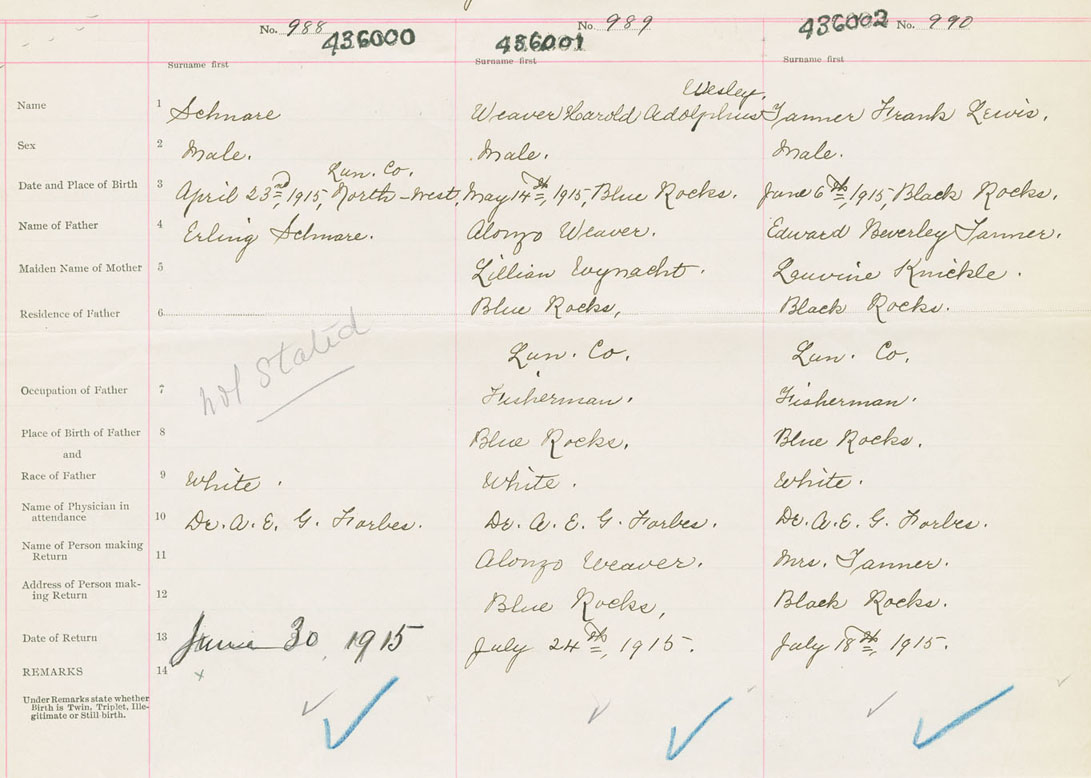 No. 988 No. 989 No. 990
436000 436001 436002
Surname first Surname first Surname first
Wesley,
Name 1 Schnare Weaver Harold Adolphus Tanner Frank Lewis.
Sex 2 Male. Male. Male.
Lun. Co.
Date and Place of Birth 3 April 23rd, 1915, North-West, May 14th, 1915, Blue Rocks. June 6th, 1915, Black Rocks.
Name of Father 4 Erling Schnare. Alonzo Weaver. Edward Beverley Tanner.
Maiden Name of Mother 5 Lillian Wynacht. Leuvine Knickle.
Residence of Father 6 Blue Rocks, Black Rocks.
not stated Lun. Co. Lun. Co.
Occupation of Father 7 Fisherman. Fisherman.
Place of Birth of Father 8 Blue Rocks. Blue Rocks.
and
Race of Father 9 White. White. White.
Name of Physician in
attendance 10 Dr. A. E. G. Forbes. Dr. A. E. G. Forbes. Dr. A. E. G. Forbes.
Name of Person making
Return 11 Alonzo Weaver. Mrs. Tanner.
Address of Person mak-
ing Return 12 Blue Rocks, Black Rocks.
Date of Return 13 June 30, 1915 July 24th, 1915. July 18th, 1915.
REMARKS 14 x
Under Remarks state whether
Birth is Twin, Triplet, Ille-
gitimate or Still-birth.